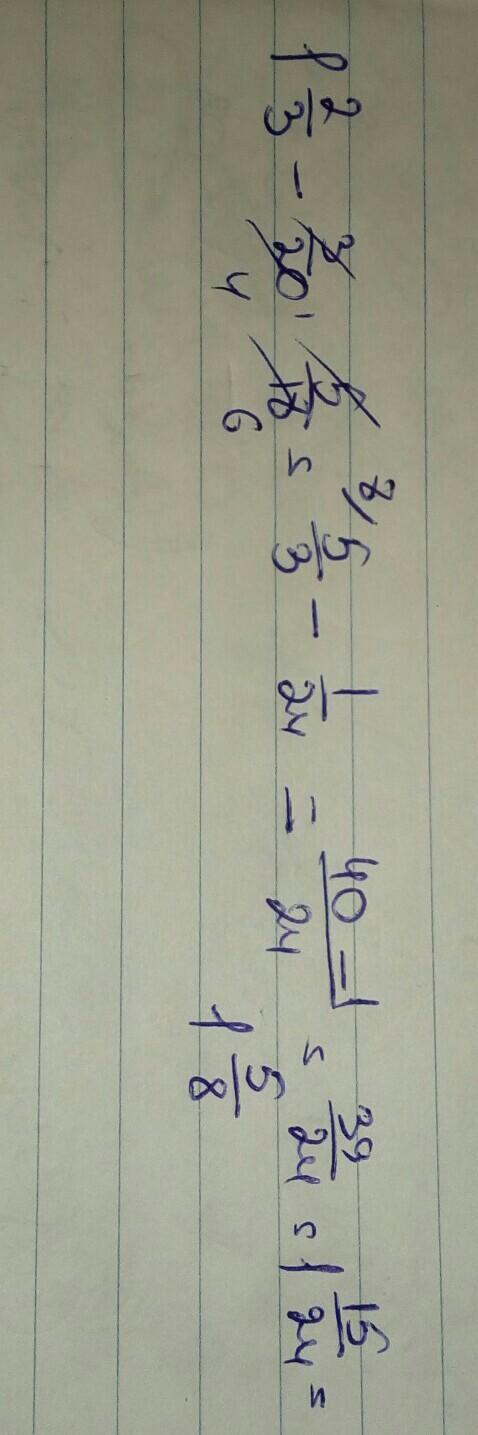 1 2/3 - 3/20 · 5/18 = 8/ 5/3 - 1/24 = 40-1/24 = 39/24 = 1 15/24 =
4 6 1 5/8